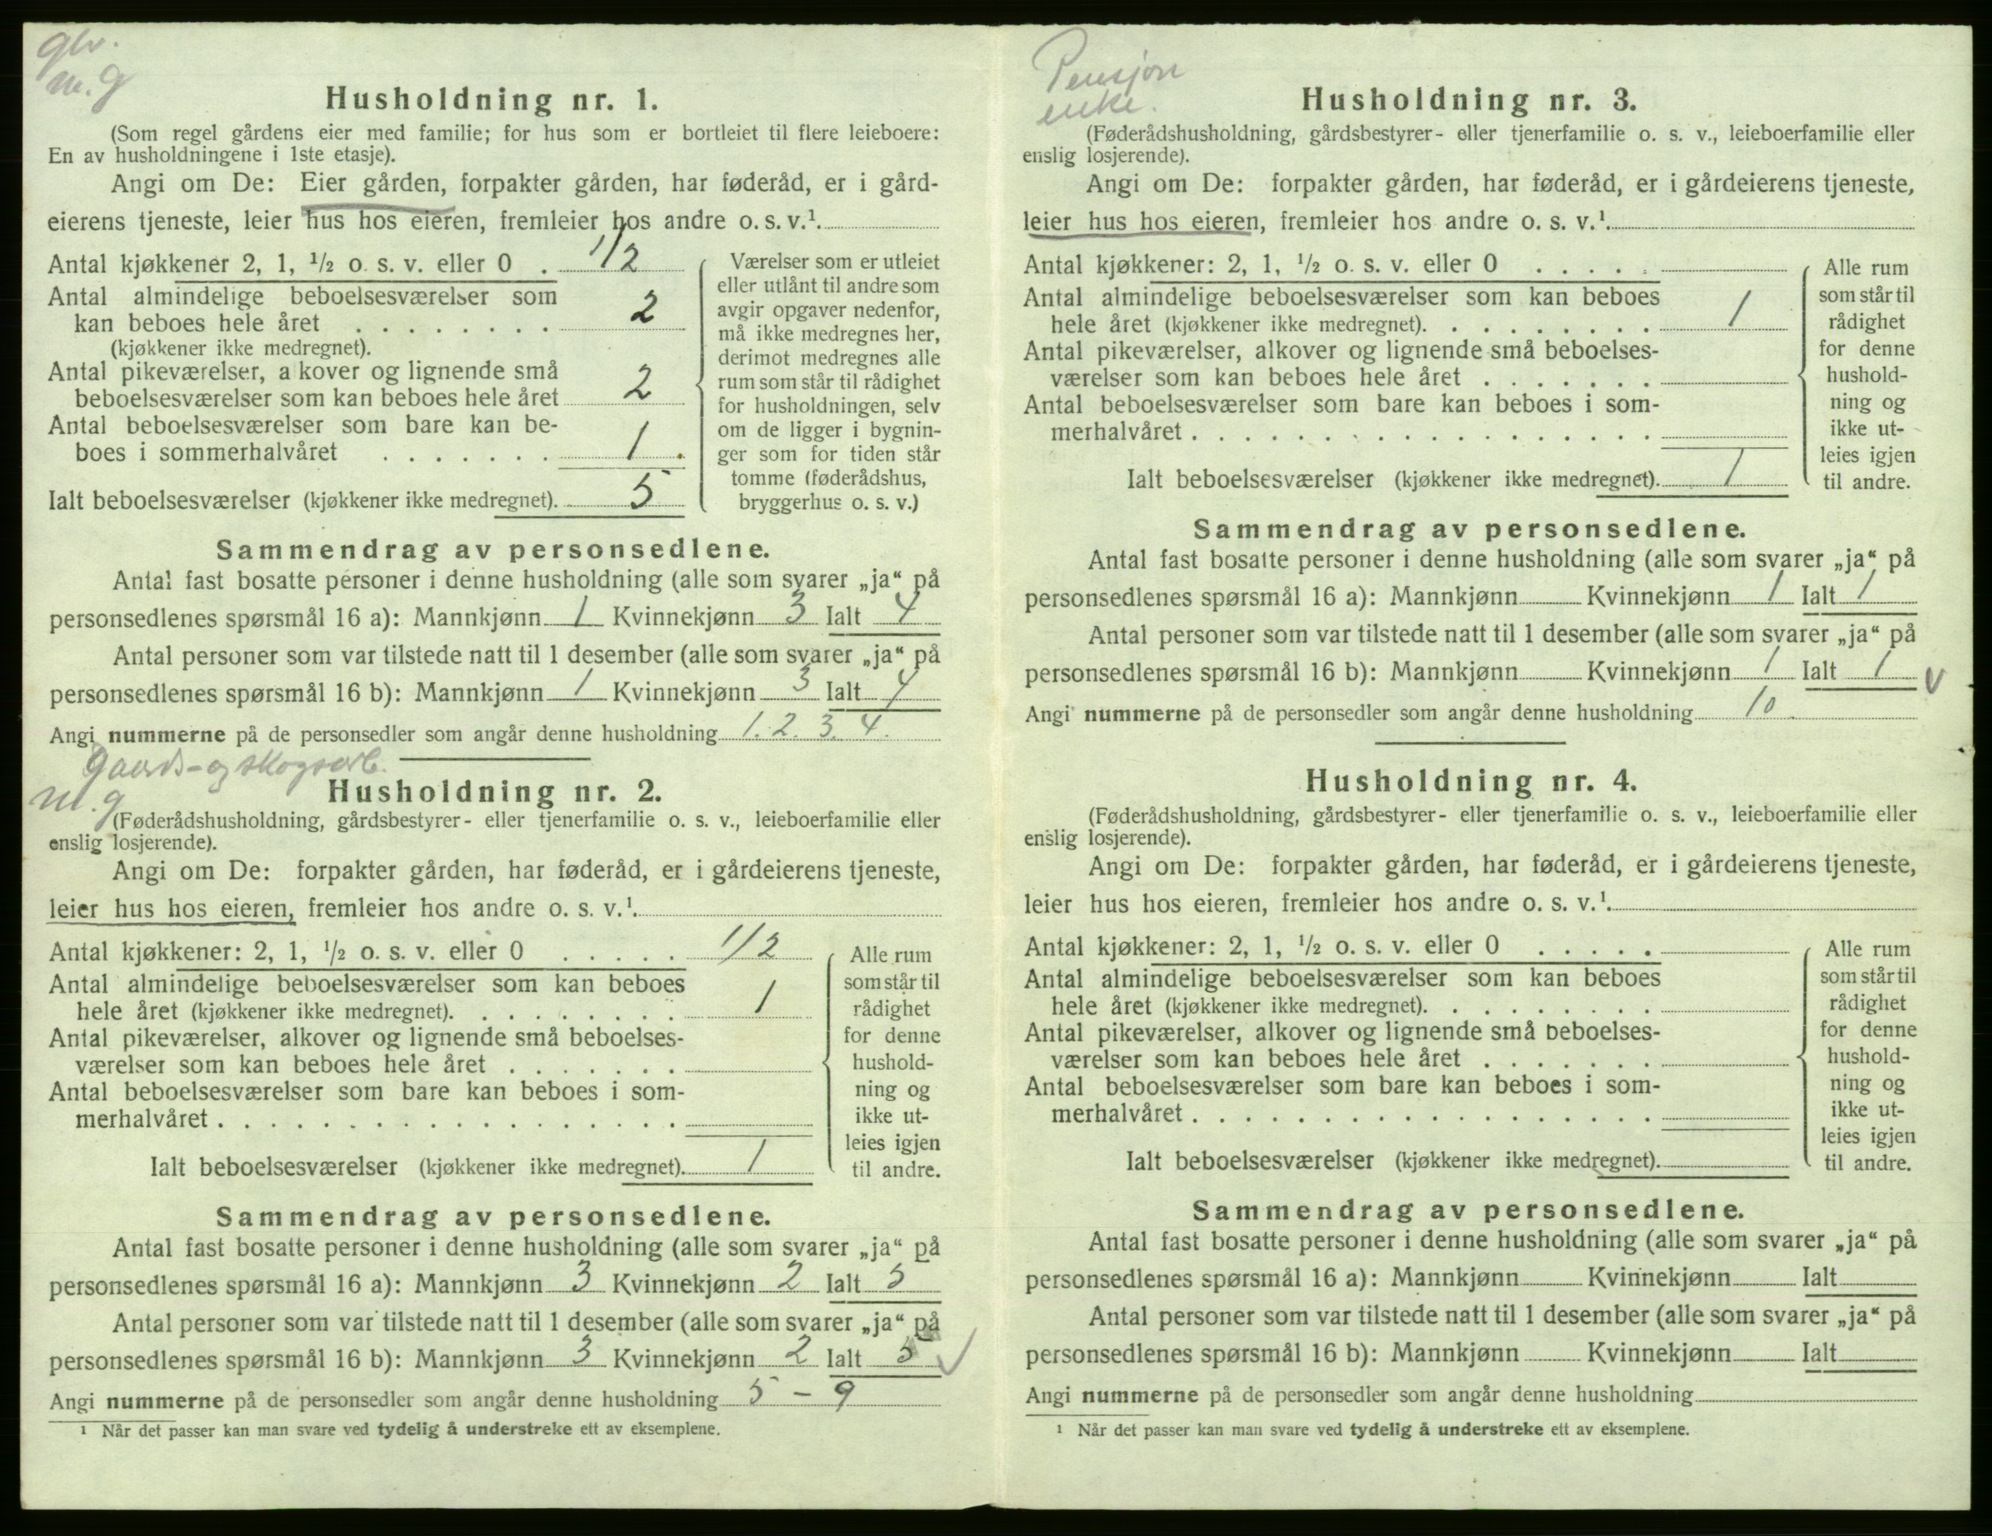 glv.
m.g
Husholdning nr. 1.
(Som regel gårdens eier med familie; for hus som er bortleiet til flere leieboere:
En av husholdningene i 1ste etasje).
Angi om De: Eier gården, forpakter gården, har føderåd, er i gård-
eierens tjeneste, leier hus hos eieren, fremleier hos andre o. s. v.¹
Antal kjøkkener 2, 1, ½ o. s. v. eller 0 . 1/2
Antal almindelige beboelsesværelser som
kan beboes hele året . . . . . . . . 2
(kjøkkener ikke medregnet).
Antal pikeværelser, a kover og lignende små
beboelsesværelser som kan beboes hele året 2
Antal beboelsesværelser som bare kan be-
boes i sommerhalvåret . . . . . . . 1
Ialt beboelsesværelser (kjøkkener ikke medregnet). 5
Værelser som er utleiet
eller utlånt til andre som
avgir opgaver nedenfor,
må ikke medregnes her,
derimot medregnes alle
rum som står til rådighet
for husholdningen, selv
om de ligger i bygnin-
ger som for tiden står
tomme (føderådshus,
bryggerhus o. s. v.)
Sammendrag av personsedlene.
Antal fast bosatte personer i denne husholdning (alle som svarer „ja“ på
personsedlenes spørsmål 16 a): Mannkjønn 1 Kvinnekjønn 3 Ialt 4
Antal personer som var tilstede natt til 1 desember (alle som svarer „ja“ på
personsedlenes spørsmål 16 b): Mannkjønn 1 Kvinnekjønn 3 Ialt 4
Angi nummerne på de personsedler som angår denne husholdning 1. 2. 3. 4.
Gaards- og skogsarb.
m.g
Husholdning nr. 2.
(Føderådshusholdning, gårdsbestyrer- eller tjenerfamilie o. s. v., leieboerfamilie eller
enslig losjerende).
Angi om De: forpakter gården, har føderåd, er i gårdeierens tjeneste,
leier hus hos eieren, fremleier hos andre o. s. v.¹
Antal kjøkkener: 2, 1, ½ o. s. v. eller 0 . . . . . 1/2
Antal almindelige beboelsesværelser som kan beboes
hele året (kjøkkener ikke medregnet). . . . . . . . . 1
Antal pikeværelser, alkover og lignende små beboelses-
værelser som kan beboes hele året . . . . . . .
Antal beboelsesværelser som bare kan beboes i som-
merhalvåret . . . . . . . . . . . . . . . . . .
Ialt beboelsesværelser (kjøkkener ikke medregnet). 1
Alle rum
som står til
rådighet
for denne
hushold-
ning og
ikke ut-
leies igjen
til andre.
Sammendrag av personsedlene.
Antal fast bosatte personer i denne husholdning (alle som svarer „ja“ på
personsedlenes spørsmål 16 a): Mannkjønn 3 Kvinnekjønn 2 Ialt 5
Antal personer som var tilstede natt til 1 desember (alle som svarer „ja“ på
personsedlenes spørsmål 16 b): Mannkjønn 3 Kvinnekjønn 2 Ialt 5
Angi nummerne på de personsedler som angår denne husholdning 5 – 9
¹ Når det passer kan man svare ved tydelig å understreke ett av eksemplene.
Pensjon
enke.
Husholdning nr. 3.
(Føderådshusholdning, gårdsbestyrer- eller tjenerfamilie o. s. v., leieboerfamilie eller
enslig losjerende).
Angi om De: forpakter gården, har føderåd, er i gårdeierens tjeneste,
leier hus hos eieren, fremleier hos andre o. s. v.¹
Antal kjøkkener: 2, 1, ½ o. s. v. eller 0 . . . . .
Antal almindelige beboelsesværelser som kan beboes
hele året (kjøkkener ikke medregnet). . . . . . . . . 1
Antal pikeværelser, alkover og lignende små beboelses-
værelser som kan beboes hele året . . . . . . .
Antal beboelsesværelser som bare kan beboes i som-
merhalvåret . . . . . . . . . . . . . . . . . .
Ialt beboelsesværelser (kjøkkener ikke medregnet). 1
Alle rum
som står til
rådighet
for denne
hushold-
ning og
ikke ut-
leies igjen
til andre.
Sammendrag av personsedlene.
Antal fast bosatte personer i denne husholdning (alle som svarer „ja“ på
personsedlenes spørsmål 16 a): Mannkjønn Kvinnekjønn 1 Ialt 1
Antal personer som var tilstede natt til 1 desember (alle som svarer „ja“ på
personsedlenes spørsmål 16 b): Mannkjønn Kvinnekjønn 1 Ialt 1
Angi nummerne på de personsedler som angår denne husholdning 10
Husholdning nr. 4.
(Føderådshusholdning, gårdsbestyrer- eller tjenerfamilie o. s. v., leieboerfamilie eller
enslig losjerende).
Angi om De: forpakter gården, har føderåd, er i gårdeierens tjeneste,
leier hus hos eieren, fremleier hos andre o. s. v.¹
Antal kjøkkener: 2, 1, ½ o. s. v. eller 0 . . . . .
Antal almindelige beboelsesværelser som kan beboes
hele året (kjøkkener ikke medregnet). . . . . . . . .
Antal pikeværelser, alkover og lignende små beboelses-
værelser som kan beboes hele året . . . . . . .
Antal beboelsesværelser som bare kan beboes i som-
merhalvåret . . . . . . . . . . . . . . . . . .
Ialt beboelsesværelser (kjøkkener ikke medregnet).
Alle rum
som står til
rådighet
for denne
hushold-
ning og
ikke ut-
leies igjen
til andre.
Sammendrag av personsedlene.
Antal fast bosatte personer i denne husholdning (alle som svarer „ja“ på
personsedlenes spørsmål 16 a): Mannkjønn Kvinnekjønn Ialt
Antal personer som var tilstede natt til 1 desember (alle som svarer „ja“ på
personsedlenes spørsmål 16 b): Mannkjønn Kvinnekjønn Ialt
Angi nummerne på de personsedler som angår denne husholdning
¹ Når det passer kan man svare ved tydelig å understreke ett av eksemplene.